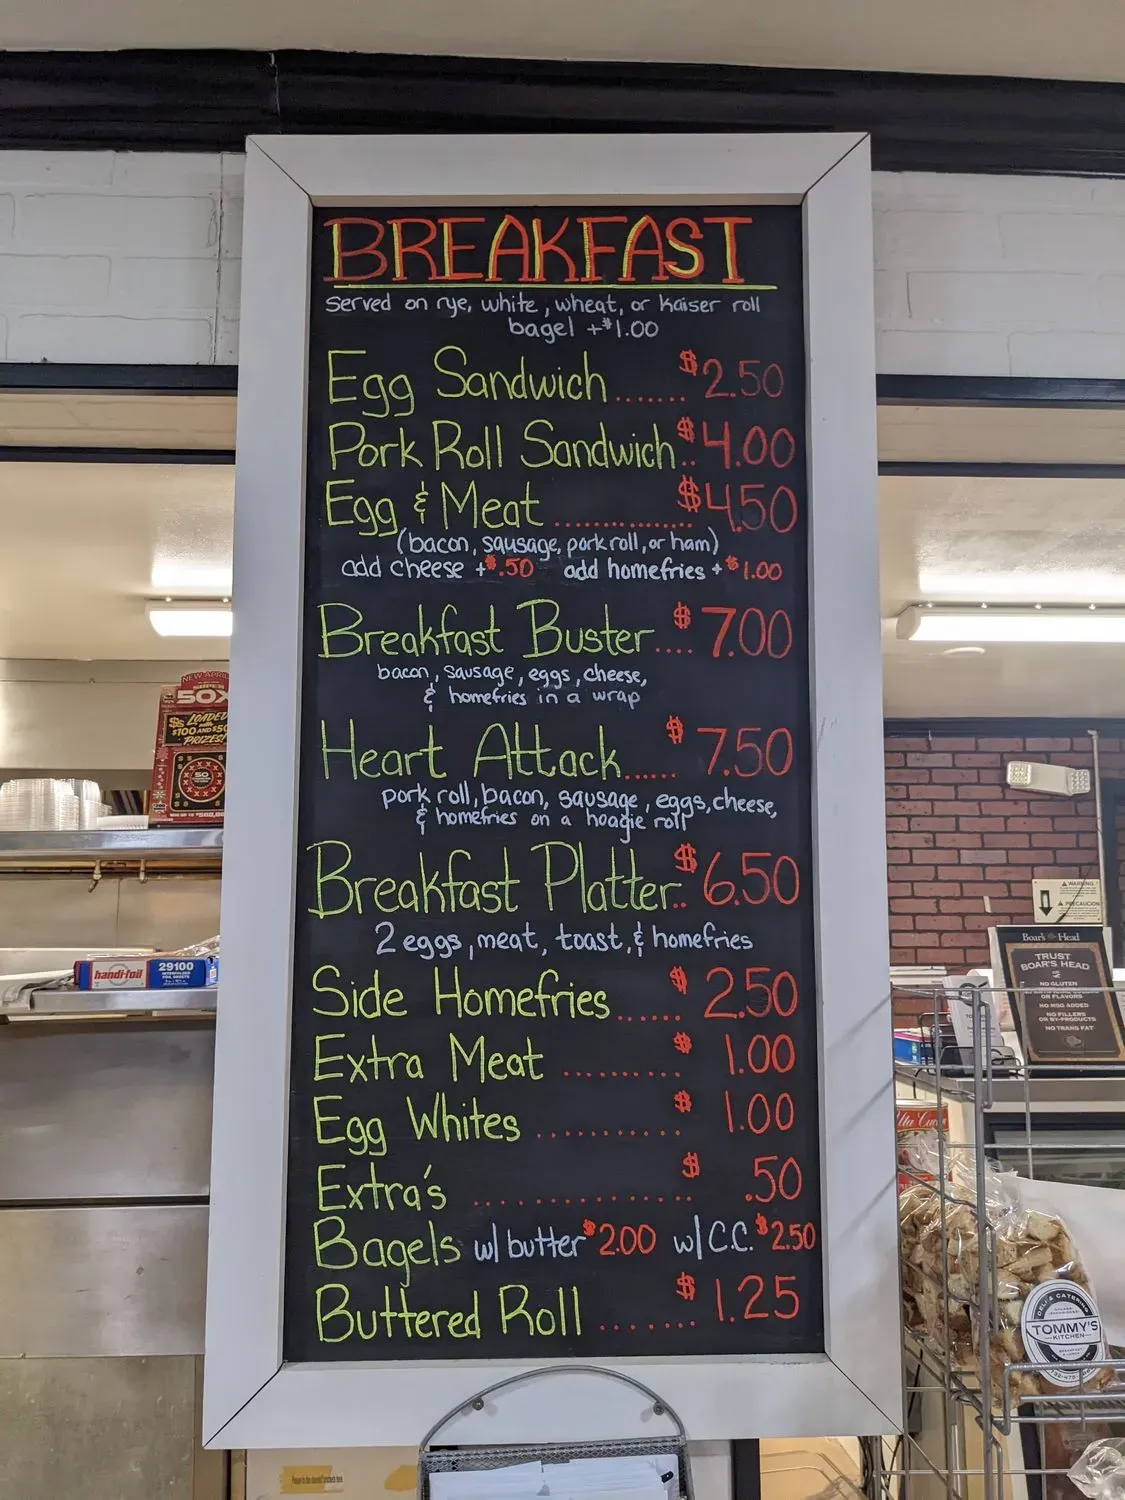 BREAKFAST
served on rye, white, wheat, or kaiser roll
bagel +$1.00
Egg Sandwich....... $2.50
Pork Roll Sandwich.. $4.00
Egg & Meat .............. $4.50
(bacon, sausage, pork roll, or ham)
add cheese +$.50 add homefries +$1.00
Breakfast Buster.... $7.00
bacon, sausage, eggs, cheese,
& homefries in a wrap
Heart Attack...... $7.50
pork roll, bacon, sausage, eggs, cheese,
& homefries on a hoagie roll
Breakfast Platter.. $6.50
2 eggs, meat, toast, & homefries
Side Homefries...... $2.50
Extra Meat ......... $1.00
Egg Whites ........... $1.00
Extra's .............. $.50
Bagels w/ butter $2.00 w/ C.C. $2.50
Buttered Roll ....... $1.25
NEW APRIL
SUPER
50X
LOADED
$100 AND $50
PRIZES!
50
handi-foil
29100
WARNING
PRECAUCION
Boar's Head
TRUST
BOAR'S HEAD
NO GLUTEN
OR FLAVORS
NO MSG ADDED
NO FILLERS
OR BY-PRODUCTS
NO TRANS FAT
DELI & CATERING
TOMMY'S
KITCHEN